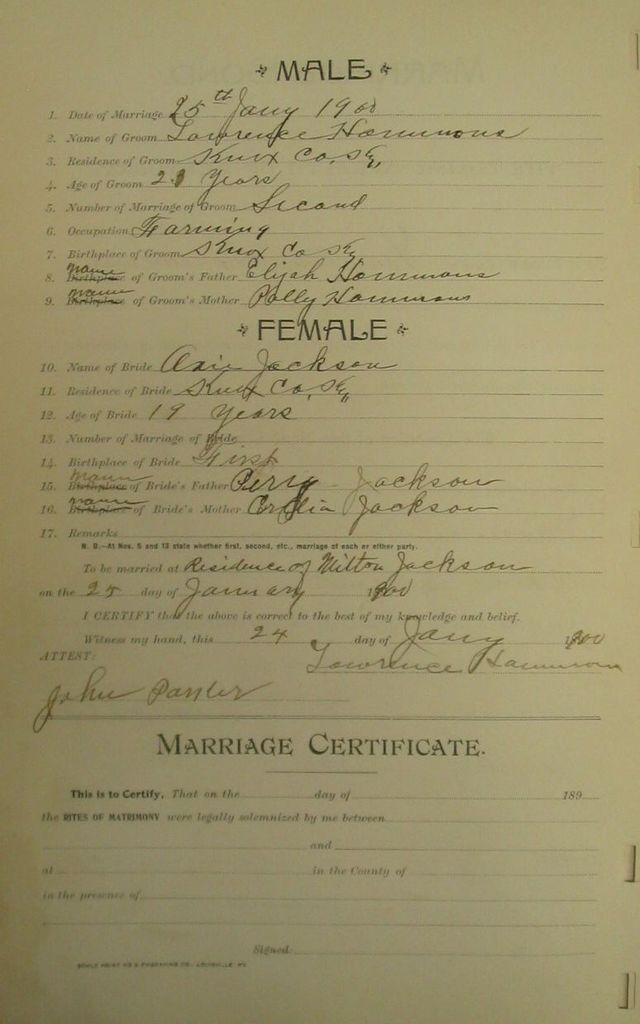 MALE
1. Date of Marriage 25th Jany 1900
2. Name of Groom Lawrence Hammons
3. Residence of Groom Knox Co, Ky,
4. Age of Groom 21 Years
5. Number of Marriage of Groom Second
6. Occupation Farming
7. Birthplace of Groom Knox Co Ky
8. Birthplace name of Groom's Father Elijah Hammons
9. Birthplace name of Groom's Mother Polly Hammons
FEMALE
10. Name of Bride Jackson
11. Residence of Bride Knox Co, Ky,
12. Age of Bride 19 Years
13. Number of Marriage of Bride
14. Birthplace of Bride First
15. Birthplace name of Bride's Father Perry Jackson
16. Birthplace name of Bride's Mother Jackson
17. Remarks
N. B.—At Nos. 5 and 13 state whether first, second, etc., marriage of each or either party.
To be married at Residence of Milton Jackson
on the 25 day of January 1900
I CERTIFY that the above is correct to the best of my knowledge and belief.
Witness my hand, this 24 day of Jany 1900
ATTEST: Lawrence Hammons
John Parker
MARRIAGE CERTIFICATE.
This is to Certify, That on the day of 189
the RITES OF MATRIMONY were legally solemnized by me between
and
at in the County of
in the presence of
Signed